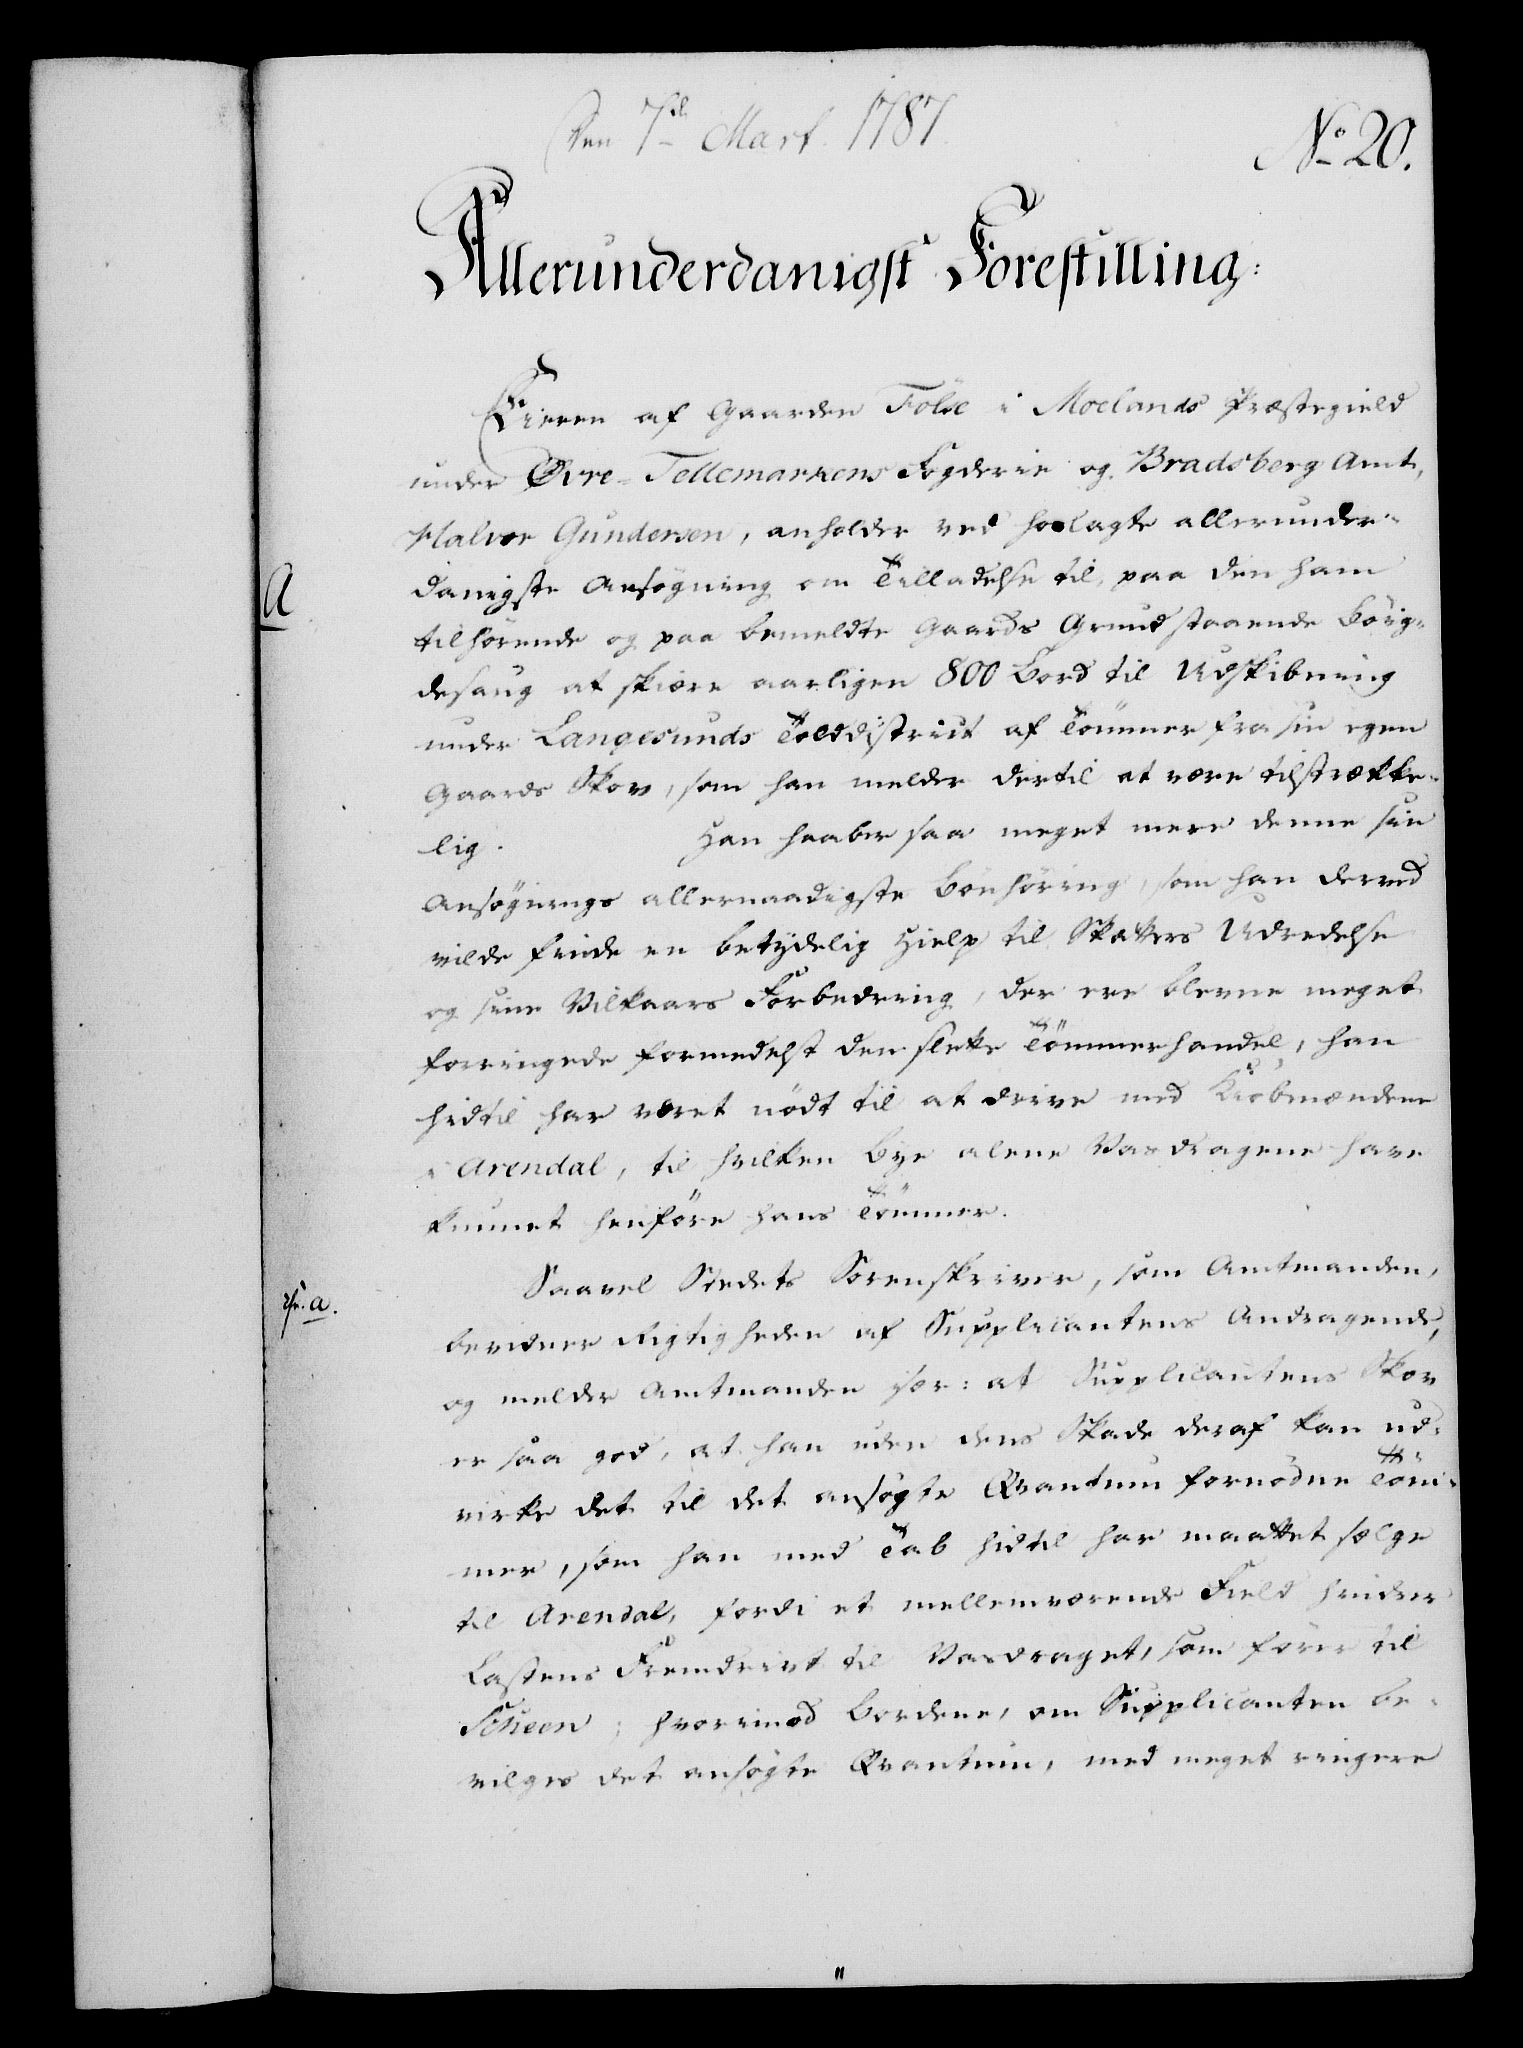 Den 7de Mart. 1787.
No 20.
Allerunderdanigst Forestilling:
Eieren af Gaarden Fölse i Moelands Præstegield
under Øvre-Tellemarkens Fogderie og Bradsberg Amt,
Halvor Gundersen, anholder ved hoslagte allerunder-
A
danigste Ansøgning om Tilladelse til, paa den ham
tilhörende og paa bemeldte Gaards Grund staaende Böig-
desaug at skiære aarligen 800 Bord til Udskibning
under Langesunds Tolddistrict af Tömmer fra sin egen
Gaards Skov, som han melder dertil at være tilstrække-
lig. Han haaber saa meget mere denne sin
Ansögnings allernaadigste Bönhöring, som han derved
vilde finde en betydelig Hielp til Skatters Udredelse
og sine Vilkaars Forbedring, der ere blevne meget
forringede formedelst den slette Tömmerhandel, han
hidtil har været nödt til at drive med Kiöbmændene
i Arendal, til hvilken Bye alene Vasdragene have
kunnet henföre hans Tömmer.
Saavel Stedets Sorenskriver, som Amtmanden,
cfr. a.
bevidner Rigtigheden af Supplicantens Andragende,
og melder Amtmanden især: at Supplicantens Skov
er saa god, at han uden dens Skade deraf kan ud-
virke det til det ansögte Qvantum fornödne Töm-
mer, som han med Tab hidtil har maattet sælge
til Arendal, fordi et mellemværende Field hindrer
Lastens Fremdrivt til Vasdraget, som förer til
Scheen; hvorimod Bordene, om Supplicanten be-
vilges det ansögte Qvantum, med meget ringere